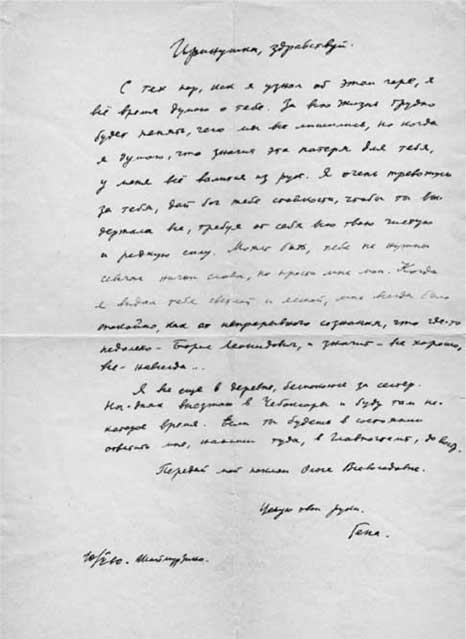 Иринушка, здравствуй.
С тех пор, как я узнал об этом горе, я
всё время думаю о тебе. За всю жизнь трудно
будет понять, чего мы все лишились, но когда
я думаю, что значит эта потеря для тебя,
у меня всё валится из рук. Я очень тревожусь
за тебя, дай бог тебе стойкости, чтобы ты вы-
держала все, требуя от себя всю твою чистую
и редкую силу. Может быть, тебе не нужны
сейчас ничьи слова, но прости мне мои. Когда
я видел тебя светлой и ясной, мне всегда было
спокойно, как от непрерывного сознания, что где-то
недалеко - Борис Леонидович, и значит - все хорошо,
все - навсегда...
Я все еще в деревне, беспокоюсь за сестер.
На-днях выезжаю в Чебоксары и буду там не-
которое время. Если ты будешь в состоянии
ответить мне, напиши туда, в Главпочтамт, до востр.
Передай мой поклон Ольге Всеволодовне.
Целую твои руки.
Гена.
Шаймурзино.